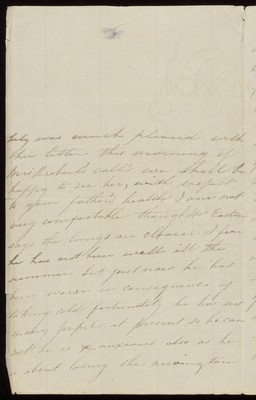 July was much pleased with
the letter this morning if
Mrs Roberts calls we shall be
happy to see her, with respect
to your father's health I am not
very comfortable though Mr Easten
says the lungs are clearer I fear
he has not been well all the
summer but just now he has
been worse in consequence of
taking cold fortunately he has not
many pupils at present so he can
rest he is anxious also as he
is about losing the